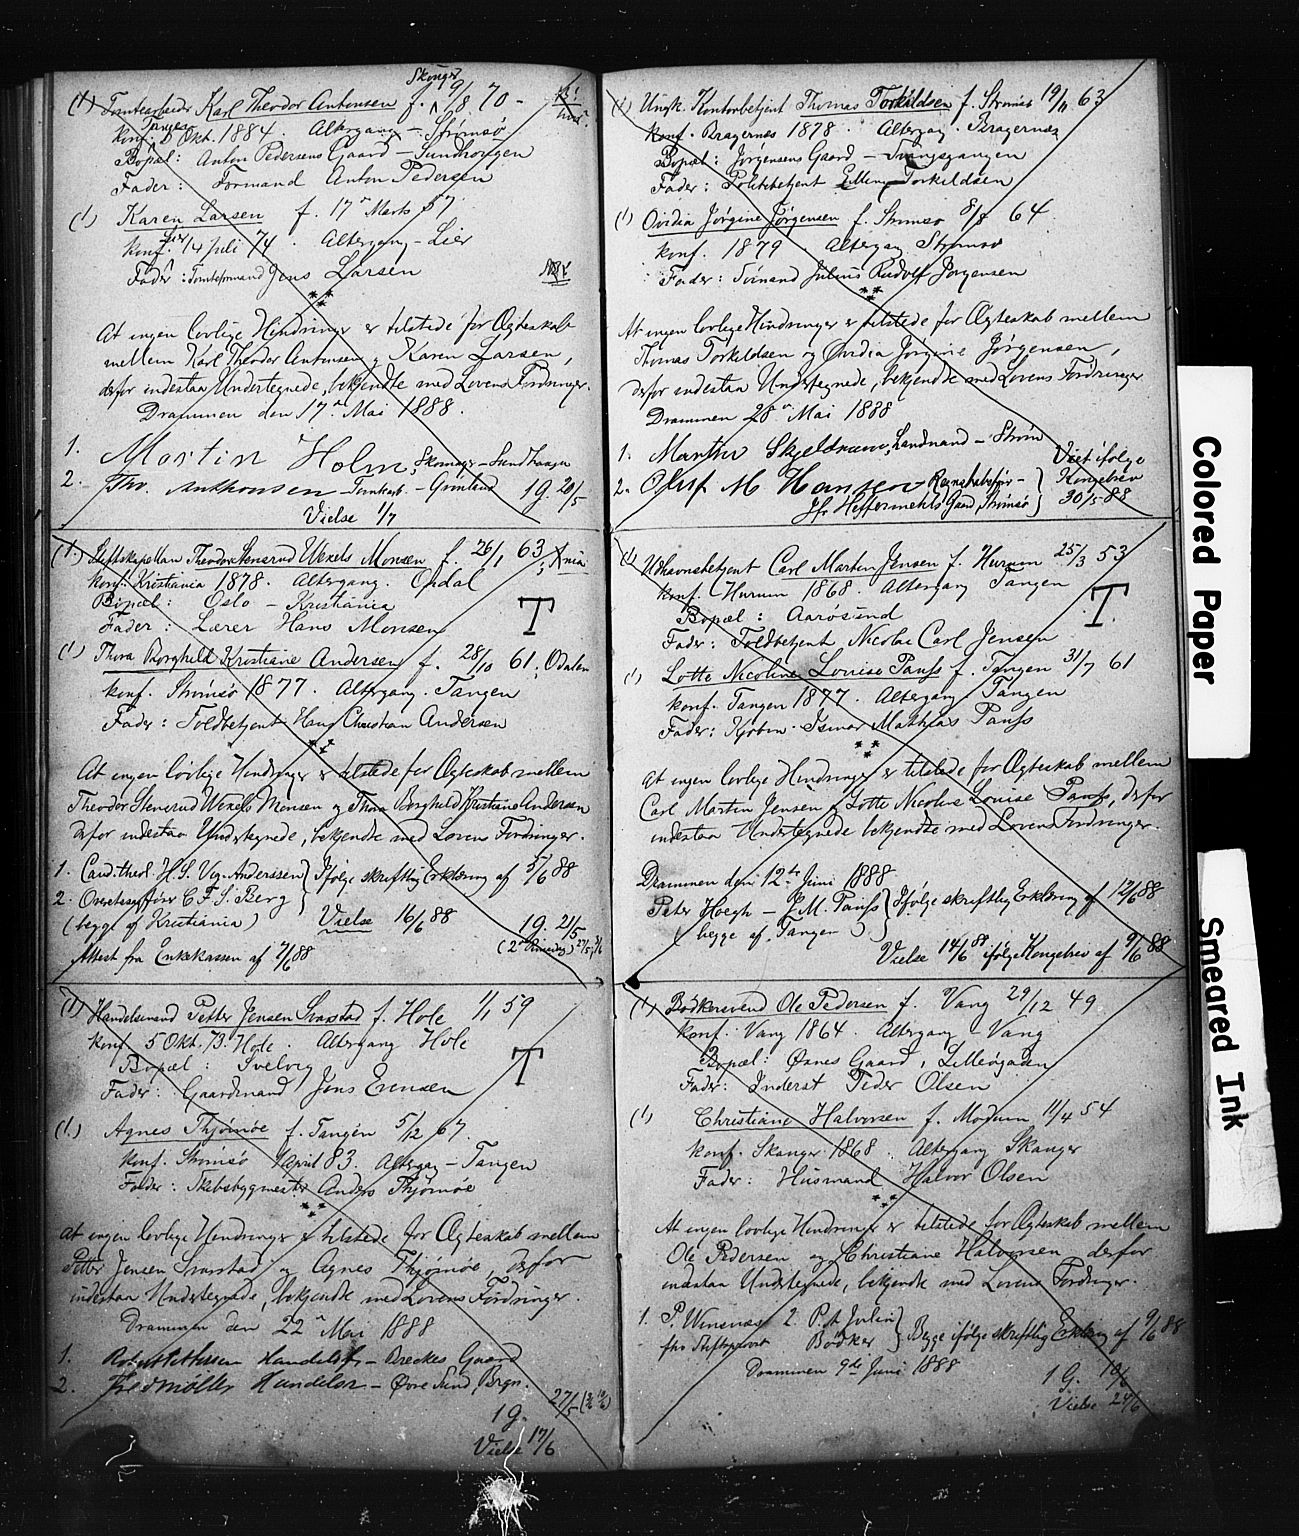 Skouger
(1) Tomtearbeider Karl Theodor Antonsen f. 19/8 70 -
konf. Tangen Okt. 1884. Altergang - Strømsø
Bopæl: Anton Pedersens Gaard - Sundhougen
Fader: Formand Anton Pedersen
(1) Karen Larsen f. 17de Marts 57
konf. Lier 14 Juli 74. Altergang - Lier
Fader: Tomteformand Jens Larsen
At ingen lovlige Hindringer er tilstede for Ægteskab
mellem Karl Theodor Antonsen og Karen Larsen,
derfor indestaa Undertegnede, bekjendte med Lovens Fordringer.
Drammen den 17de Mai 1888.
1. Martin Holm, Skomager - Sundhaugen
2. Anthonsen - Tomtearb. - Grønland 1 g. 20/5
Vielse 1/7
(1.) Stiftskapellan Theodor Stenerud Wexels Monsen f. 26/1 63; Xnia
konf. Kristiania 1878. Altergang. Opdal
Bopæl: Oslo - Kristiania
Fader: Lærer Hans Monsen T
(1) Thora Borghild Kristiane Andersen f. 28/10 61; Odalen
konf. Strømsø 1877. Altergang. Tangen
Fader: Toldbetjent Hans Christian Andersen
At ingen lovlige Hindringer er tilstede for Ægteskab mellem
Theodor Stenerud Wexels Monsen og Thora Borghild Kristiane Andersen
derfor indestaa Undertegnede, bekjendte med Lovens Fordringer.
1. Cand. theol. H. S. Anderssen } Ifølge skriftlig Erklæring af 5/6 88
2. C F S. Berg
(begge af Kristiania) Vielse 16/6 88 1 g. 21/5
Attest fra Enkekassen af 7/6 88
(1) Handelsmand Petter Jensen Svarstad f. Hole 1/1 59
konf. 5 Okt. 73. Hole. Altergang Hole
Bopæl: Svelvig T
Fader: Gaardmand Jens Evensen
(1.) Agnes Thjømøe f. Tangen 5/12 67.
konf. Strømsø April 83. Altergang - Tangen
Fader: Skibsbygmester Anders Thjømøe
At ingen lovlige Hindringer er tilstede for Ægteskab mellem
Petter Jensen Svarstad og Agnes Thjømøe, derfor
indestaa Undertegnede, bekjendte med Lovens Fordringer.
Drammen den 22de Mai 1888
1. Handelsf. - Breckes Gaard
2. Fredmøller Handelsr - Øvre Sund, Brgn.
1 g. 27/5
Vielse 17/6
(1) Ungk. Kontorbetjent Thomas Torkildsen f. Strømsø 19/11 63
konf. Bragernes 1878. Altergang. Bragernæs
Bopæl: Jørgensens Gaard - Tvangsgangen
Fader: Politibetjent Elling Torkildsen
(1) Ovidia Jørgine Jørgensen f. Strømsø 8/8 64.
konf. 1879. Altergang Strømsø
Fader: Julius Rudolf Jørgensen
At ingen lovlige Hindringer er tilstede for Ægteskab mellem
Thomas Torkildsen og Ovidia Jørgine Jørgensen,
derfor indestaa Undertegnede, bekjendte med Lovens Fordringer
Drammen 28de Mai 1888
1. Marthin Skjeldrum, Landmand - Strøm Viet ifølge
2. Oluf M Hansen Regnskabsfør - Kongebrev
Heftermehls Gaard, Strømsø } 30/5 88
(1) Udhavnsbetjent Carl Martin Jensen f. Hurum 25/3 53
konf. Hurum 1868. Altergang Tangen
Bopæl: Aarøsund T
Fader: Toldbetjent Nicolai Carl Jensen
(1) Lotte Nicoline Louise Paust f. Tangen 31/7 61
konf. Tangen 1877. Altergang Tangen
Fader: Kjøbm. Mathias Paust
At ingen lovlige Hindringer er tilstede for Ægteskab mellem
Carl Martin Jensen og Lotte Nicoline Louise Paust, derfor
indestaa Undertegnede bekjendte med Lovens Fordringer.
Drammen den 12te Juni 1888
Peter Hoegh - M. Paust } Ifølge skriftlig Erklæring af 12/6 88
(begge af Tangen)
Vielse 14/6 88 ifølge Kongebrev af 9/6 88
(1) Bødkersvend Ole Pedersen f. Vang 29/12 49
konf. Vang 1864. Altergang Vang
Bopæl: Øsnes Gaard, Lilleøgaden
Fader: Inderst Peder Olsen
(1) Christiane Halvorsen f. Modum 11/4 54
konf. Skouger 1868. Altergang Skouger
Fader: Husmand Halvor Olsen
At ingen lovlige Hindringer er tilstede for Ægteskab mellem
Ole Pedersen og Christiane Halvorsen derfor
indestaa Undertegnede, bekjendte med Lovens Fordringer.
1. P. Winsnæs 2. P. A Julin
fhv Stiftsprovst Bødker } Begge ifølge skriftlig Erklæring af 9/6 88
Drammen 9de Juni 1888
1 G. 10/6
Vielse 24/6
Colored Paper
Smeared Ink